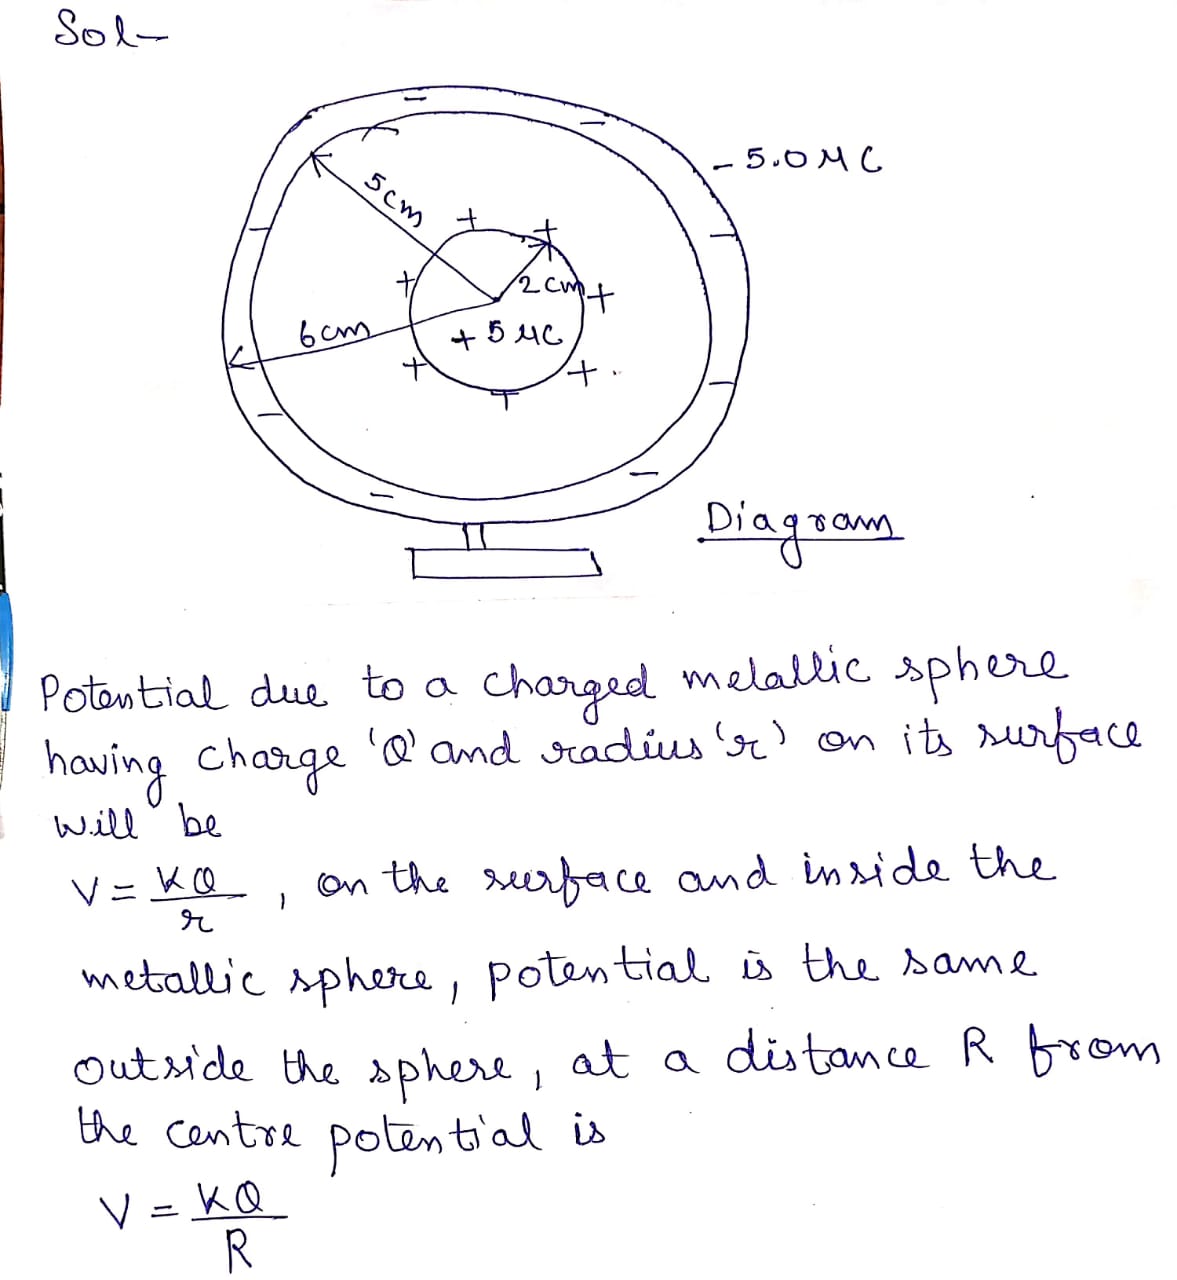 Sol-
- 5.0 MC
5cm
2cm
6cm
+ 5 MC
Diagram
Potential due to a charged melallic sphere
having charge 'Q' and radius 'r' on its surface
will be
V = KQ/r , on the surface and inside the
metallic sphere, potential is the same
outside the sphere, at a distance R from
the centre potential is
V = KQ/R